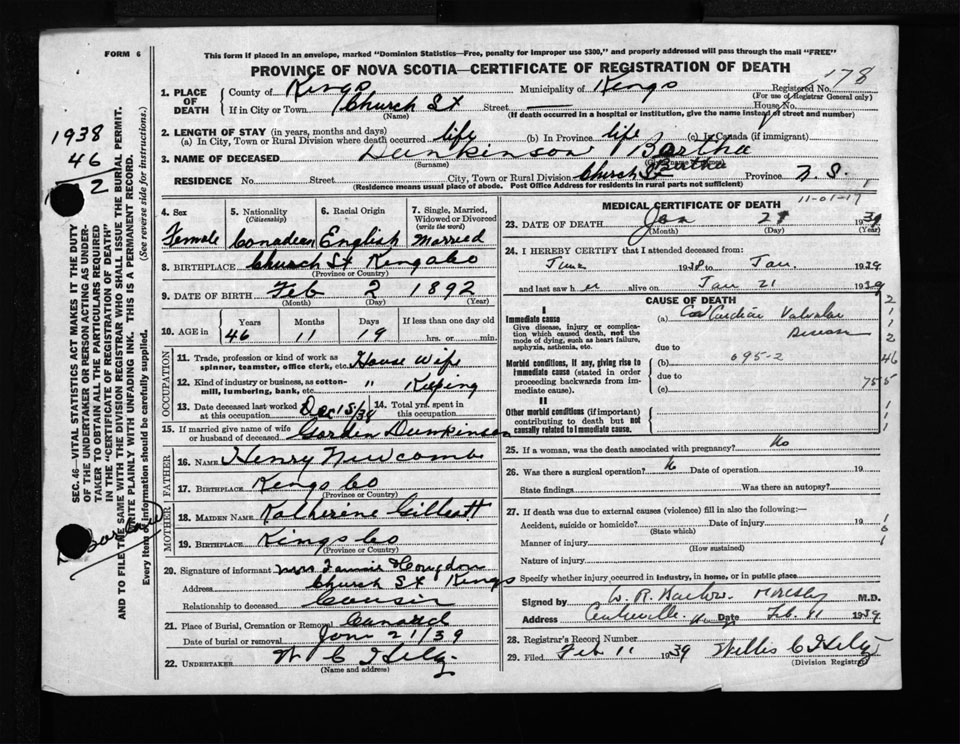 FORM 6
This form if placed in an envelope, marked "Dominion Statistics—Free, penalty for improper use $300," and properly addressed will pass through the mail "FREE"
PROVINCE OF NOVA SCOTIA—CERTIFICATE OF REGISTRATION OF DEATH
178
1. PLACE OF DEATH
County of Kings Municipality of Kings Registered No.
(For use of Registrar General only)
If in City or Town Church St Street — House No.
(Name) (If death occurred in a hospital or institution, give the name instead of street and number)
2. LENGTH OF STAY (in years, months and days)
(a) In City, Town or Rural Division where death occurred life (b) In Province life (c) In Canada (if immigrant)
3. NAME OF DECEASED Dunkinson Bertha
(Surname)
RESIDENCE No. Street City, Town or Rural Division Church St Province N. S.
(Residence means usual place of abode. Post Office Address for residents in rural parts not sufficient)
1938
46
2
SEC. 46—VITAL STATISTICS ACT MAKES IT THE DUTY
OF THE UNDERTAKER OR PERSON ACTING AS UNDER-
TAKER TO OBTAIN ALL THE PARTICULARS REQUIRED
IN THE "CERTIFICATE OF REGISTRATION OF DEATH"
AND TO FILE THE SAME WITH THE DIVISION REGISTRAR WHO SHALL ISSUE THE BURIAL PERMIT.
WRITE PLAINLY WITH UNFADING INK. THIS IS A PERMANENT RECORD.
Every item of information should be carefully supplied. (See reverse side for instructions.)
4. Sex
Female
5. Nationality
(Citizenship)
Canadian
6. Racial Origin
English
7. Single, Married, Widowed or Divorced
(write the word)
Married
8. BIRTHPLACE Church St Kings Co
(Province or Country)
9. DATE OF BIRTH Feb 2 1892
(Month) (Day) (Year)
10. AGE in
Years Months Days If less than one day old
46 11 19 hrs. or min.
OCCUPATION
11. Trade, profession or kind of work as spinner, teamster, office clerk, etc. House Wife
12. Kind of industry or business, as cotton-mill, lumbering, bank, etc. " Keeping
13. Date deceased last worked at this occupation Dec 15/38
14. Total yrs. spent in this occupation
15. If married give name of wife or husband of deceased Gordon Dunkinson
FATHER
16. NAME Henry Newcombe
17. BIRTHPLACE Kings Co
(Province or Country)
MOTHER
18. MAIDEN NAME Katherine Gilliatt
19. BIRTHPLACE Kings Co
(Province or Country)
20. Signature of informant Mrs Fannie Congdon
Address Church St Kings
Relationship to deceased Cousin
21. Place of Burial, Cremation or Removal Canard
Date of burial or removal Jan 21/39
22. UNDERTAKER
(Name and address)
MEDICAL CERTIFICATE OF DEATH
11-01-17
23. DATE OF DEATH Jan 21 1939
(Month) (Day) (Year)
24. I HEREBY CERTIFY that I attended deceased from:
June 1938 to Jan. 1939
and last saw her alive on Jan 21 1939
CAUSE OF DEATH
I
Immediate cause
Give disease, injury or complication which caused death, not the mode of dying, such as heart failure, asphyxia, asthenia, etc.
(a) Cardiac Valvular Disease
due to
095-2
Morbid conditions, if any, giving rise to immediate cause (stated in order proceeding backwards from immediate cause).
(b)
due to
(c)
II
Other morbid conditions (if important) contributing to death but not causally related to immediate cause.
2
1
1
2
46
755
1
1
1
25. If a woman, was the death associated with pregnancy? No
26. Was there a surgical operation? No Date of operation 19
State findings Was there an autopsy?
27. If death was due to external causes (violence) fill in also the following:—
Accident, suicide or homicide? Date of injury 19
(State which)
Manner of injury
(How sustained)
Nature of injury
Specify whether injury occurred in industry, in home, or in public place
Signed by M.D.
Address Centreville Date Feb. 11 1939
28. Registrar's Record Number
29. Filed Feb 11 1939 Willis C
(Division Registrar)